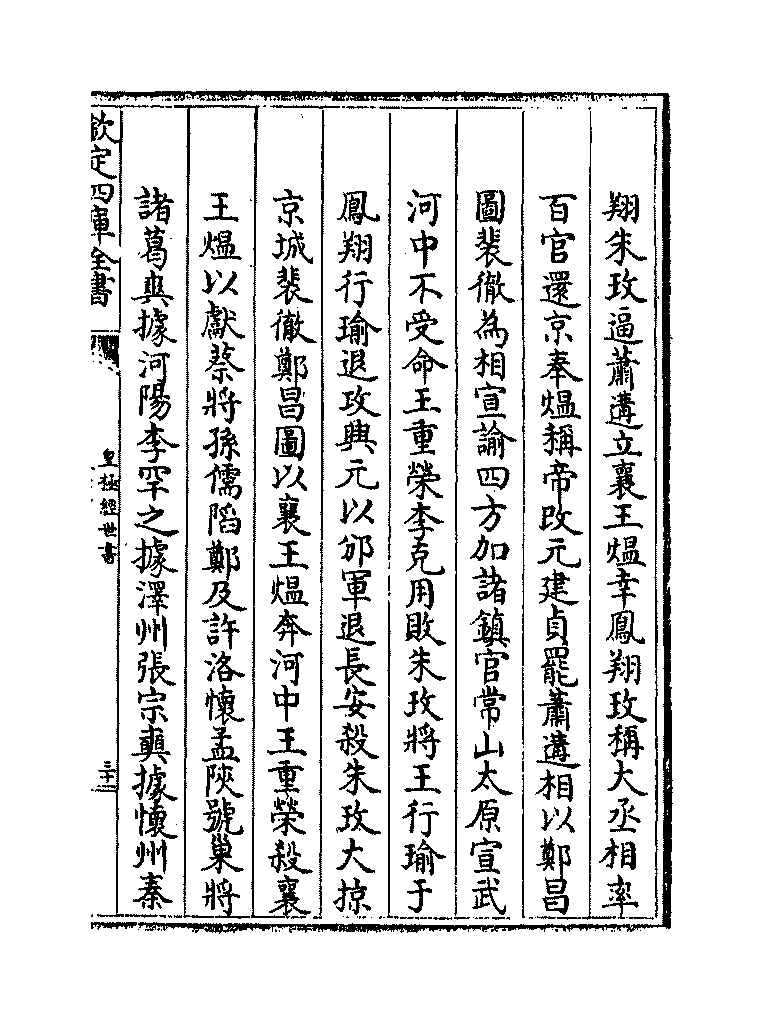 翔朱玫逼蕭遘立襄王熅幸鳳翔玫稱大丞相率
百官還京奉熅稱帝改元建貞罷蕭遘相以鄭昌
圖裴徹為相宣諭四方加諸鎮官常山太原宣武
河中不受命王重榮李克用敗朱玫將王行瑜于
鳳翔行瑜退攻興元以邠軍退長安殺朱玫大掠
京城裴徹鄭昌圖以襄王熅奔河中王重榮殺襄
王熅以獻蔡將孫儒䧟鄭及許洛懷孟陝虢巢將
諸葛爽據河陽李罕之據澤州張宗奭據懷州秦
欽定四庫全書
皇極經世書
三十二